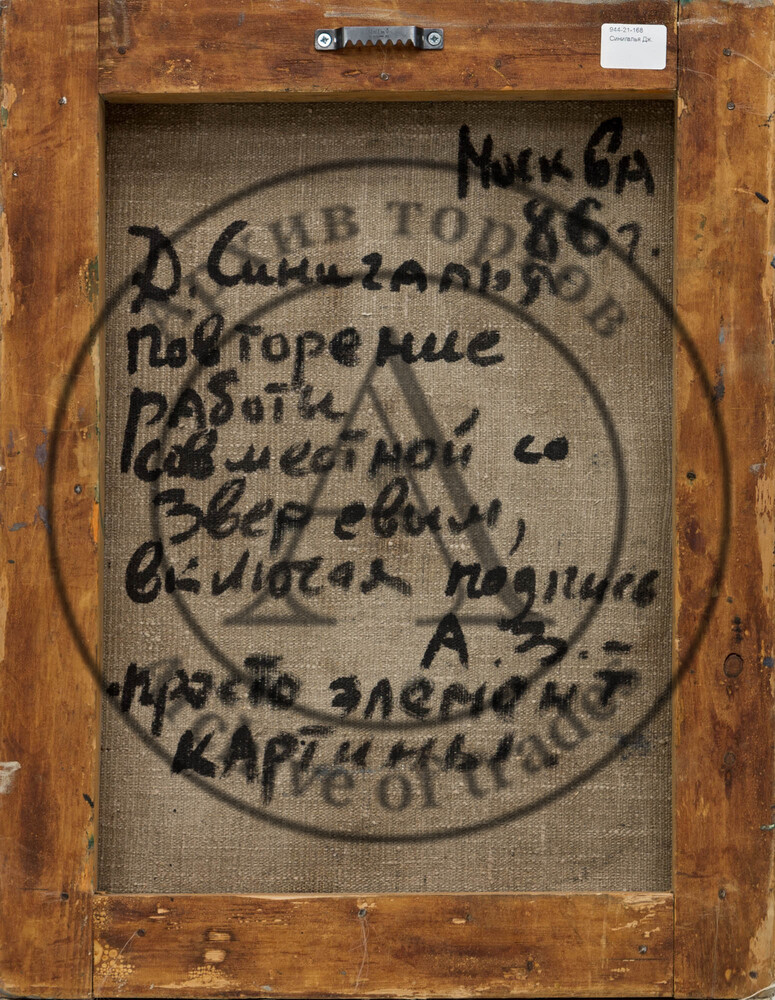 944-21-168
Синигалья Дж.
Москва
86 г.
Д. Синигалья
повторение
работи
совместной со
Зверевым,
включая подпись
А.З.-
просто элемент
картины.
Архив торгов
Archive of trades
А